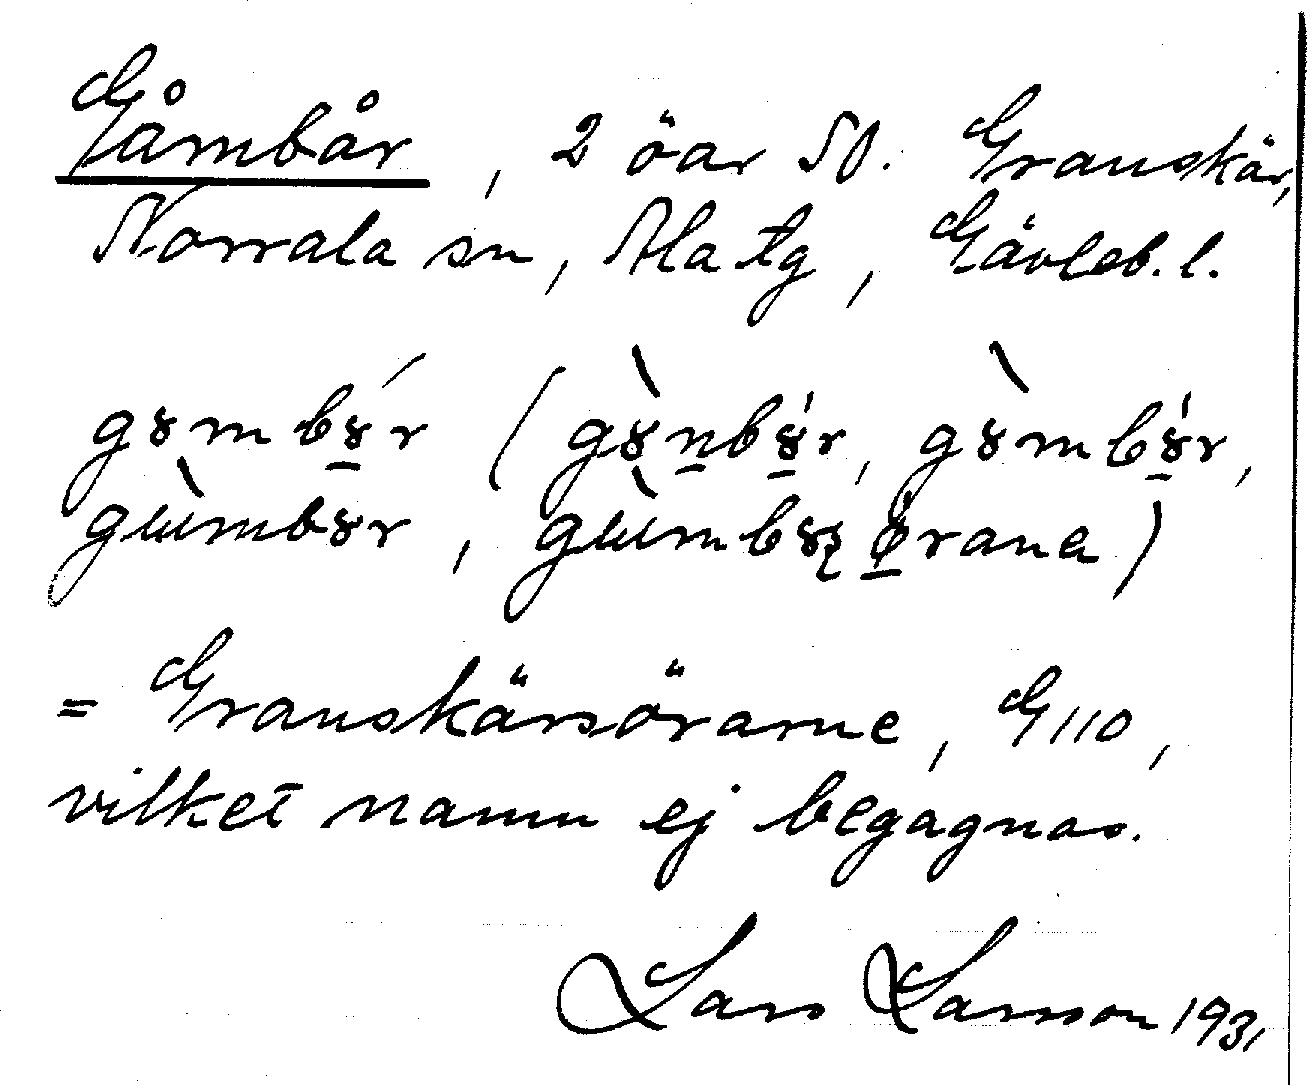 Gåmbår, 2 öar SO. Granskär,
Norrala sn, Ala tg, Gävleb. l.
gɤmbɤ́r (gɤ̀nbɤ́r, gɤ̀mbɤ́r,
gɯ̀mbɤr, gɯ̀mbɤʐ örana)
= Granskärsörarne, G 110,
vilket namn ej begagnas.
Lars Larsson 1931